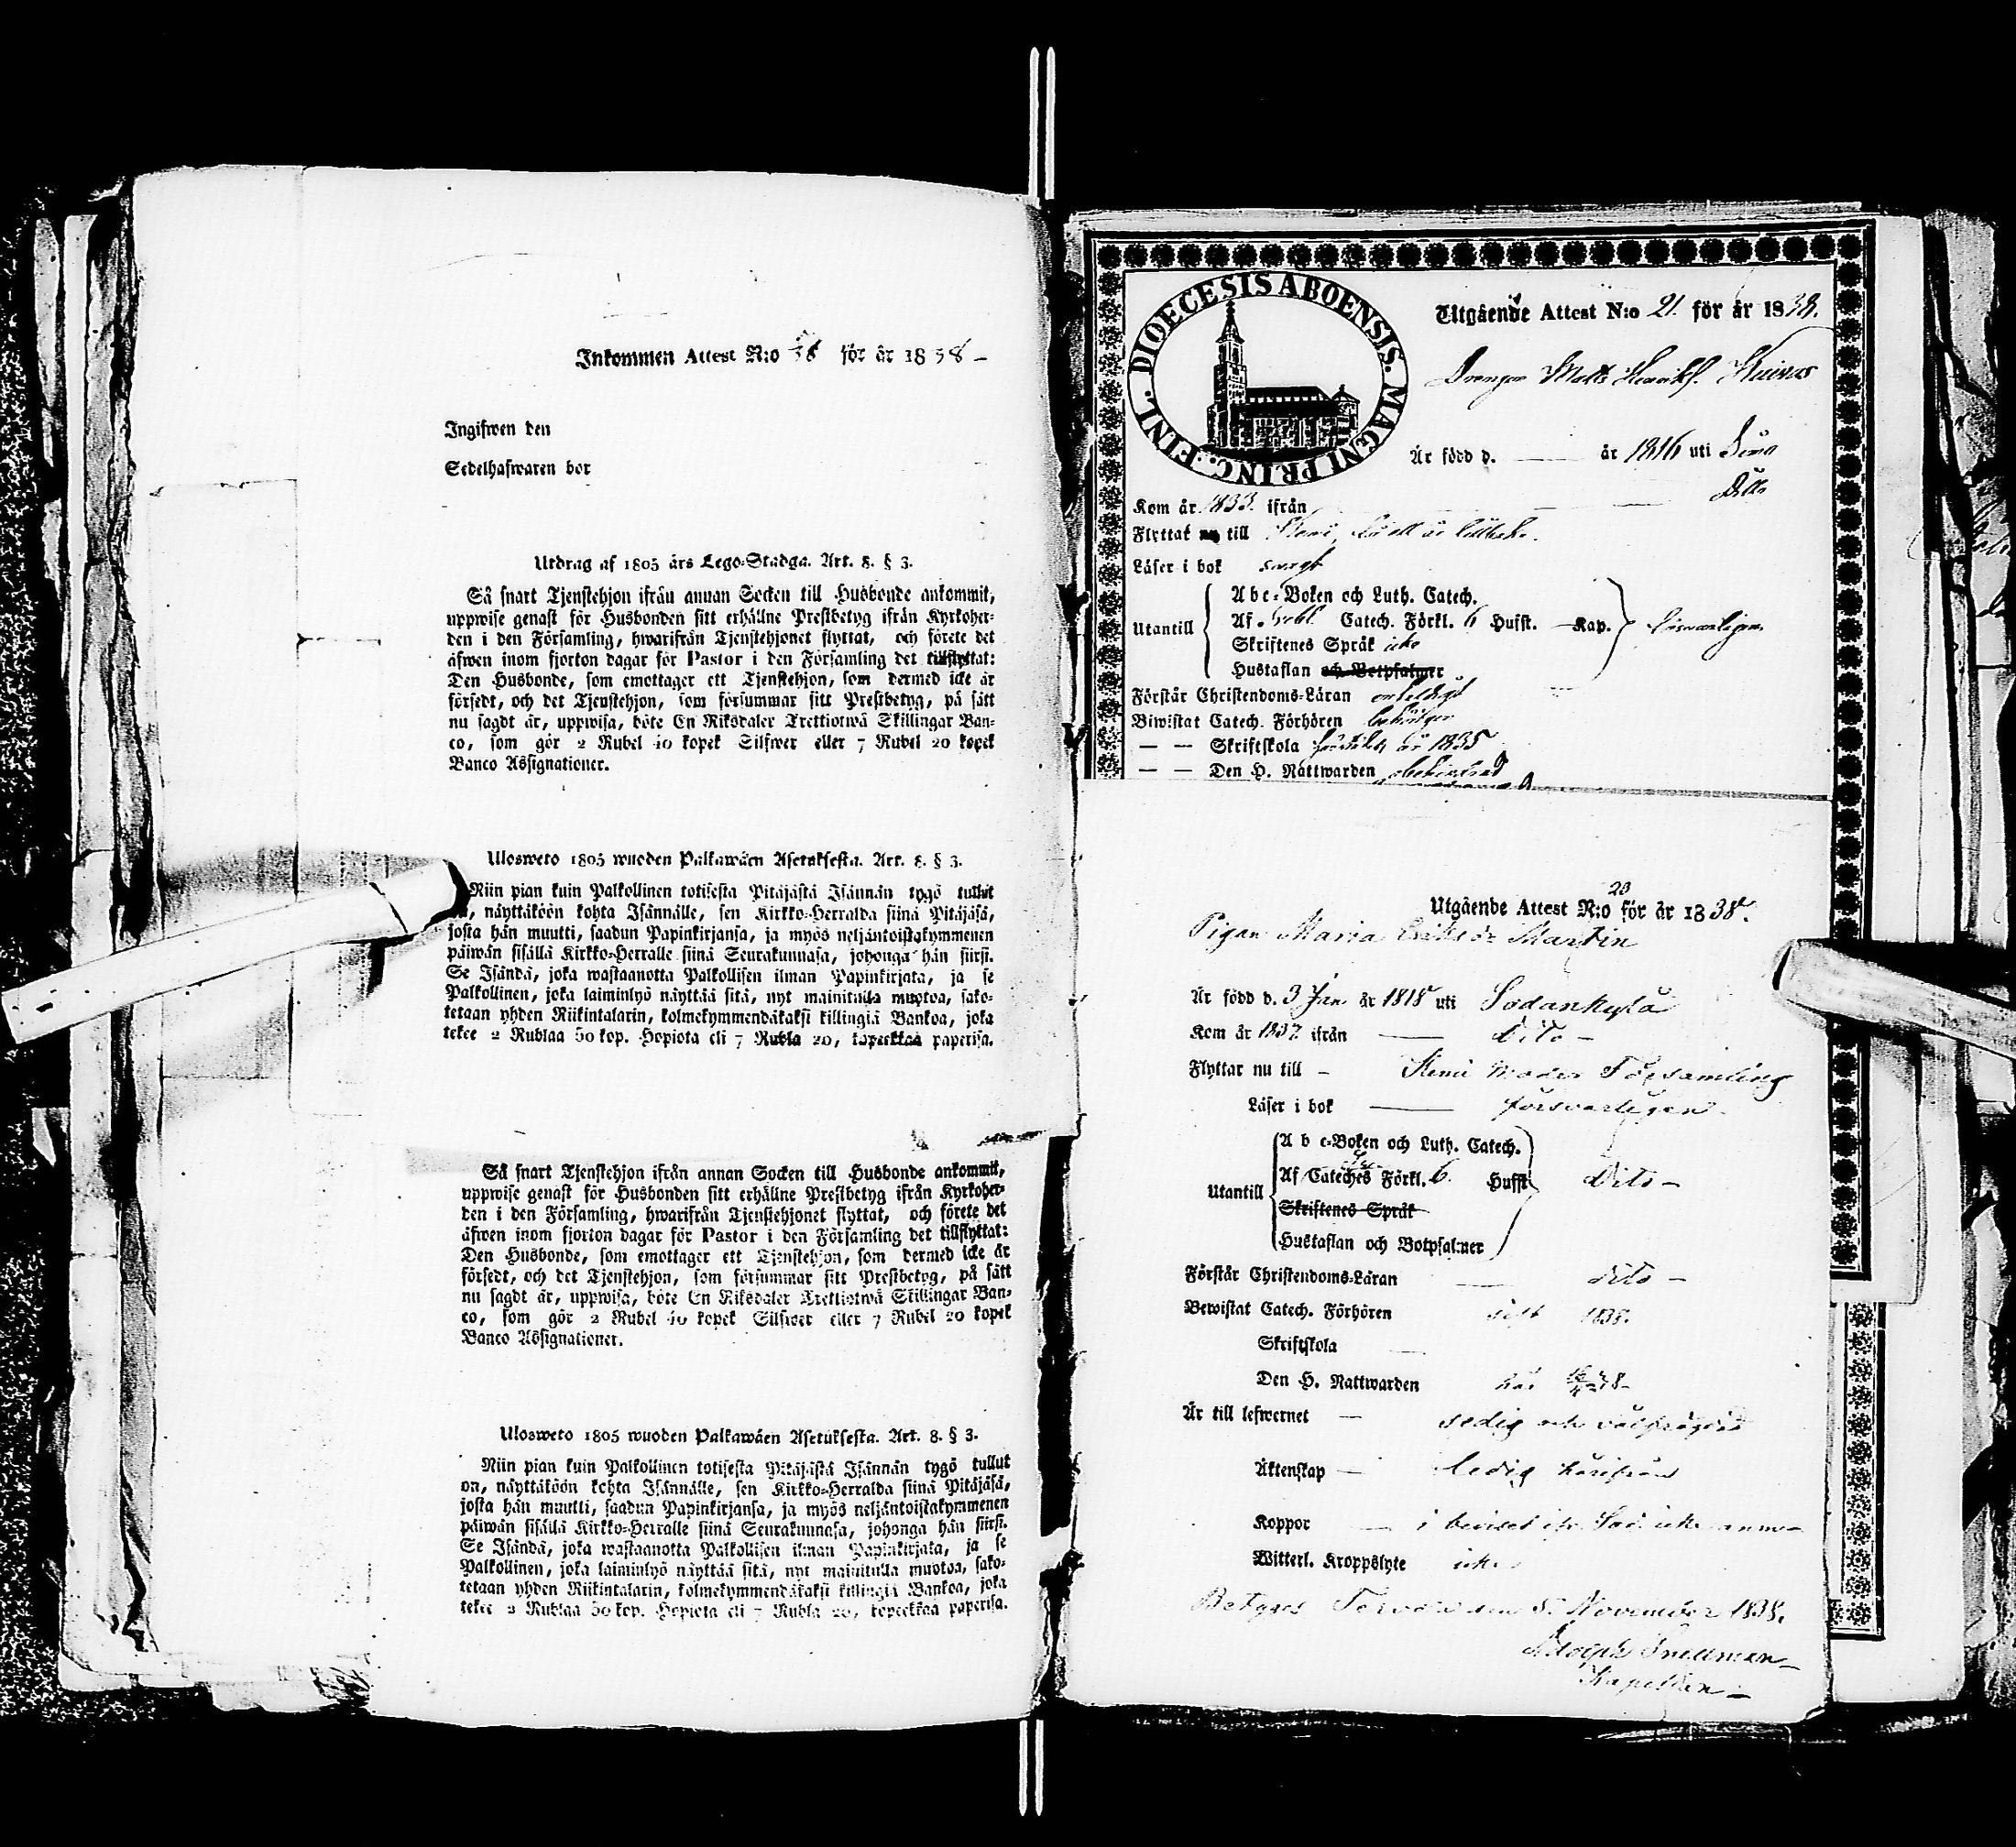 Inkommen Attest N:o 36 för år 1838 —
Ingifwen den
Sedelhafwaren bor
Utdrag af 1805 års Lego-Stadga. Art. 8. § 3.
Så snart Tjenstehjon ifrån annan Socken till Husbonde ankommit,
uppwise genast för Husbonden sitt erhållne Prestbetyg ifrån Kyrkoher-
den i den Församling, hwarifrån Tjenstehjonet flyttat, och förete det
äfwen inom fjorton dagar för Pastor i den Församling det tillflyttat:
Den Husbonde, som emottager ett Tjenstehjon, som dermed icke är
försedt, och det Tjenstehjon, som försummar sitt Prestbetyg, på sätt
nu sagdt är, uppwisa, böte En Riksdaler Trettiotwå Skillingar Ban-
co, som gör 2 Rubel 40 kopek Silfwer eller 7 Rubel 20 kopek
Banco Assignationer.
Ulosweto 1805 wuoden Palkawäen Asetuksesta. Art. 8. § 3.
Niin pian kuin Palkollinen toisesta Pitäjästä Isännän tygö tullut
näyttäköön kohta Isännälle, sen Kirkko-Herralda siinä Pitäjäsä,
josta hän muutti, saadun Papinkirjansa, ja myös neljäntoistakymmenen
päiwän sisällä Kirkko-Herralle siinä Seurakunnasa, johonga hän siirsi.
Se Isändä, joka wastaanotta Palkollisen ilman Papinkirjata, ja se
Palkollinen, joka laiminlyö näyttää sitä, nyt mainitulla muotoa, sako-
tetaan yhden Riikintalarin, kolmekymmendäkaksi killingiä Bankoa, joka
tekee 2 Rublaa 50 kop. Hopiota eli 7 Rubla 20, kopeekkaa paperisa.
Så snart Tjenstehjon ifrån annan Socken till Husbonde ankommit,
uppwise genast för Husbonden sitt erhållne Prestbetyg ifrån Kyrkoher-
den i den Församling, hwarifrån Tjenstehjonet flyttat, och förete det
äfwen inom fjorton dagar för Pastor i den Församling det tillflyttat:
Den Husbonde, som emottager ett Tjenstehjon, som dermed icke är
försedt, och det Tjenstehjon, som försummar sitt Prestbetyg, på sätt
nu sagdt är, uppwisa, böte En Riksdaler Trettiotwå Skillingar Ban-
co, som gör 2 Rubel 40 kopek Silfwer eller 7 Rubel 20 kopek
Banco Assignationer.
Ulosweto 1805 wuoden Palkawäen Asetuksesta. Art. 8. § 3.
Niin pian kuin Palkollinen toisesta Pitäjästä Isännän tygö tullut
on, näyttäköön kohta Isännälle, sen Kirkko-Herralda siinä Pitäjäsä,
josta hän muutti, saadun Papinkirjansa, ja myös neljäntoistakymmenen
päiwän sisällä Kirkko-Herralle siinä Seurakunnasa, johonga hän siirsi.
Se Isändä, joka wastaanotta Palkollisen ilman Papinkirjata, ja se
Palkollinen, joka laiminlyö näyttää sitä, nyt mainitulla muotoa, sako-
tetaan yhden Riikintalarin, kolmekymmendäkaksi killingiä Bankoa, joka
tekee 2 Rublaa 50 kop. Hopiota eli 7 Rubla 20, kopeekkaa paperisa.
DIOECESIS ABOENSIS. MAGNI PRINC. FINL.
Utgående Attest N:o 21. för år 1838.
Drengen Matts Henriks.
Är född d. — år 1816 uti Simo
Kom år 1833. ifrån — Dito
Flyttat till Kemi,
Läser i bok swagt
Utantill
A b c-Boken och Luth. Catech.
Af Catech. Förkl. 6 Hufst. — Kap.
Skriftenes Språk icke
Hustaflan och Botpsalmer
Förstår Christendoms-Läran
Biwistat Catech. Förhören
— — Skriftskola år 1835
— — Den H. Nattwarden obehindrad
Utgående Attest N:o 23 för år 1838.
Pigan Maria Eriksdr Martin
Är född d. 3 Jan år 1818 uti Sodankylä
Kom år 1837 ifrån — Dito —
Flyttar nu till — Kemi Moder Församling
Läser i bok — försvarligen.
Utantill
A b c-Boken och Luth. Catech.
Af Cateches Förkl. 6. Hufst. Dito —
Skriftenes Språk
Hustaflan och Botpsalmer
Förstår Christendoms-Läran — dito —
Bewistat Catech. Förhören 1838.
Skriftskola —
Den H. Nattwarden här
Är till lefwernet — sedig och välfrägdad
Äktenskap — ledig härifrån
Koppor — i beviset ifr. Sod. icke
Witterl. Kroppslyte icke
Betygas Tervola den 5. November 1838.
Adolph Snellman —
Kapellan —